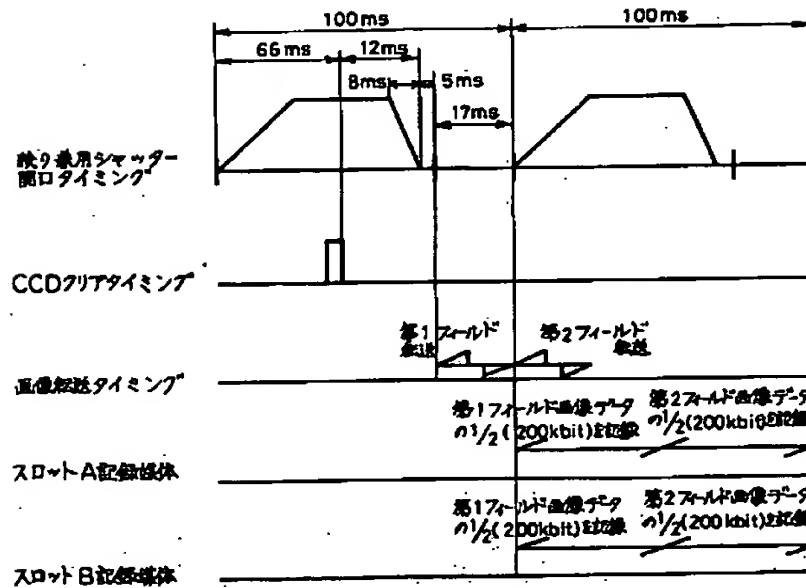 100ms 100ms
66ms 12ms
8ms 5ms
17ms
絞り兼用シャッター
開口タイミング
CCDクリアタイミング
第1フィールド
転送
第2フィールド
転送
画像転送タイミング
第1フィールド画像データ
の1/2(200kbit)を記録
第2フィールド画像データ
の1/2(200kbit)を記録
スロットA記録媒体
第1フィールド画像データ
の1/2(200kbit)を記録
第2フィールド画像データ
の1/2(200kbit)を記録
スロットB記録媒体